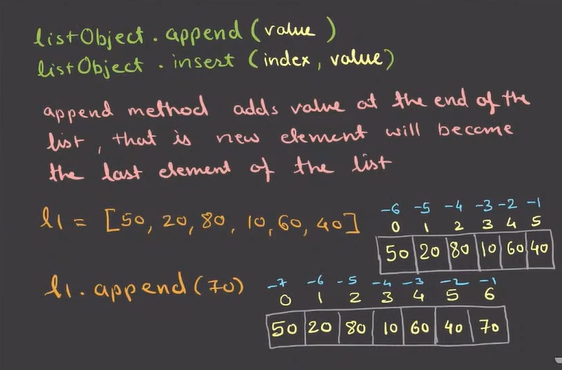 listObject.append(value)
listObject.insert(index, value)
append method adds value at the end of the
list, that is new element will become
the last element of the list
l1 = [50, 20, 80, 10, 60, 40]
-6 -5 -4 -3 -2 -1
0 1 2 3 4 5
50 20 80 10 60 40
l1.append(70)
-7 -6 -5 -4 -3 -2 -1
0 1 2 3 4 5 6
50 20 80 10 60 40 70